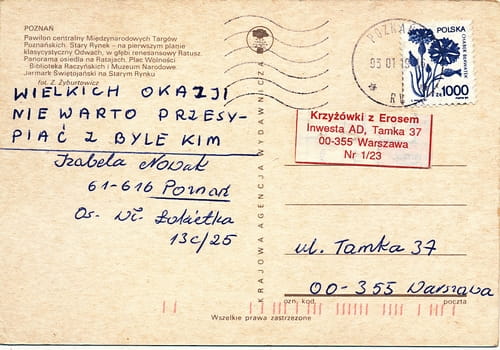 POZNAŃ
Pawilon centralny Międzynarodowych Targów
Poznańskich. Stary Rynek – na pierwszym planie
klasycystyczny Odwach, w głębi renesansowy Ratusz.
Panorama osiedla na Ratajach. Plac Wolności
Biblioteka Raczyńskich i Muzeum Narodowe.
Jarmark Świętojański na Starym Rynku
fot. Z. Żyburtowicz
WIELKICH OKAZJI
NIE WARTO PRZESY-
PIAĆ Z BYLE KIM
Izabela Nowak
61-616 Poznań
Os. Wł. Łokietka
13c/25
KRAJOWA AGENCJA WYDAWNICZA
POZNAŃ
93 01 19
POLSKA
CHABER BŁAWATEK
ZŁ 1000
Krzyżówki z Erosem
Inwesta AD, Tamka 37
00-355 Warszawa
Nr 1/23
ul. Tamka 37
00-355 Warszawa
ozn. kod.
poczta
Wszelkie prawa zastrzeżone